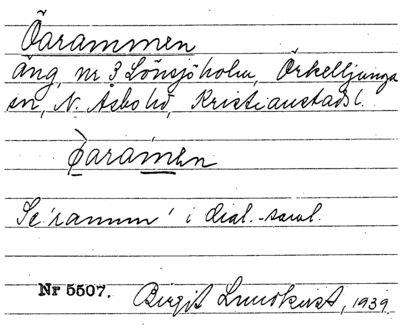 Öarammen
äng, nr 3 Lönsjöholm, Örkelljunga
sn, N. Åsbo hd, Kristianstads l.
ȯaramen
Se 'ramm' i dial.-saml.
Nr 5507. Birgit Lundkvist, 1939.